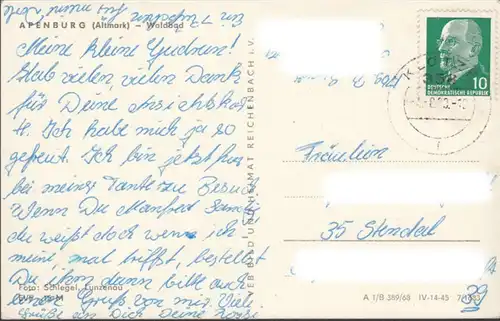 APENBURG (Altmark) – Waldbad
Meine kleine Gudrun!
Hab vielen, vielen Dank
für Deine Ansichtskar-
te. Ich habe mich ja so
gefreut. Ich bin jetzt hier
bei meiner Tante zu Besuch.
Wenn Du Manfred
du weißt doch wenn ich
mein, mal triffst, bestellst
Du ihm dann bitte auch
einen Gruß von mir. Viele
Grüße an Dich Deine
Foto: Schlegel, Lunzenau
VEB BILD UND HEIMAT REICHENBACH i. V.
10
DEUTSCHE
DEMOKRATISCHE REPUBLIK
Fräulein
35 Stendal
A 1/B 389/68 IV-14-45